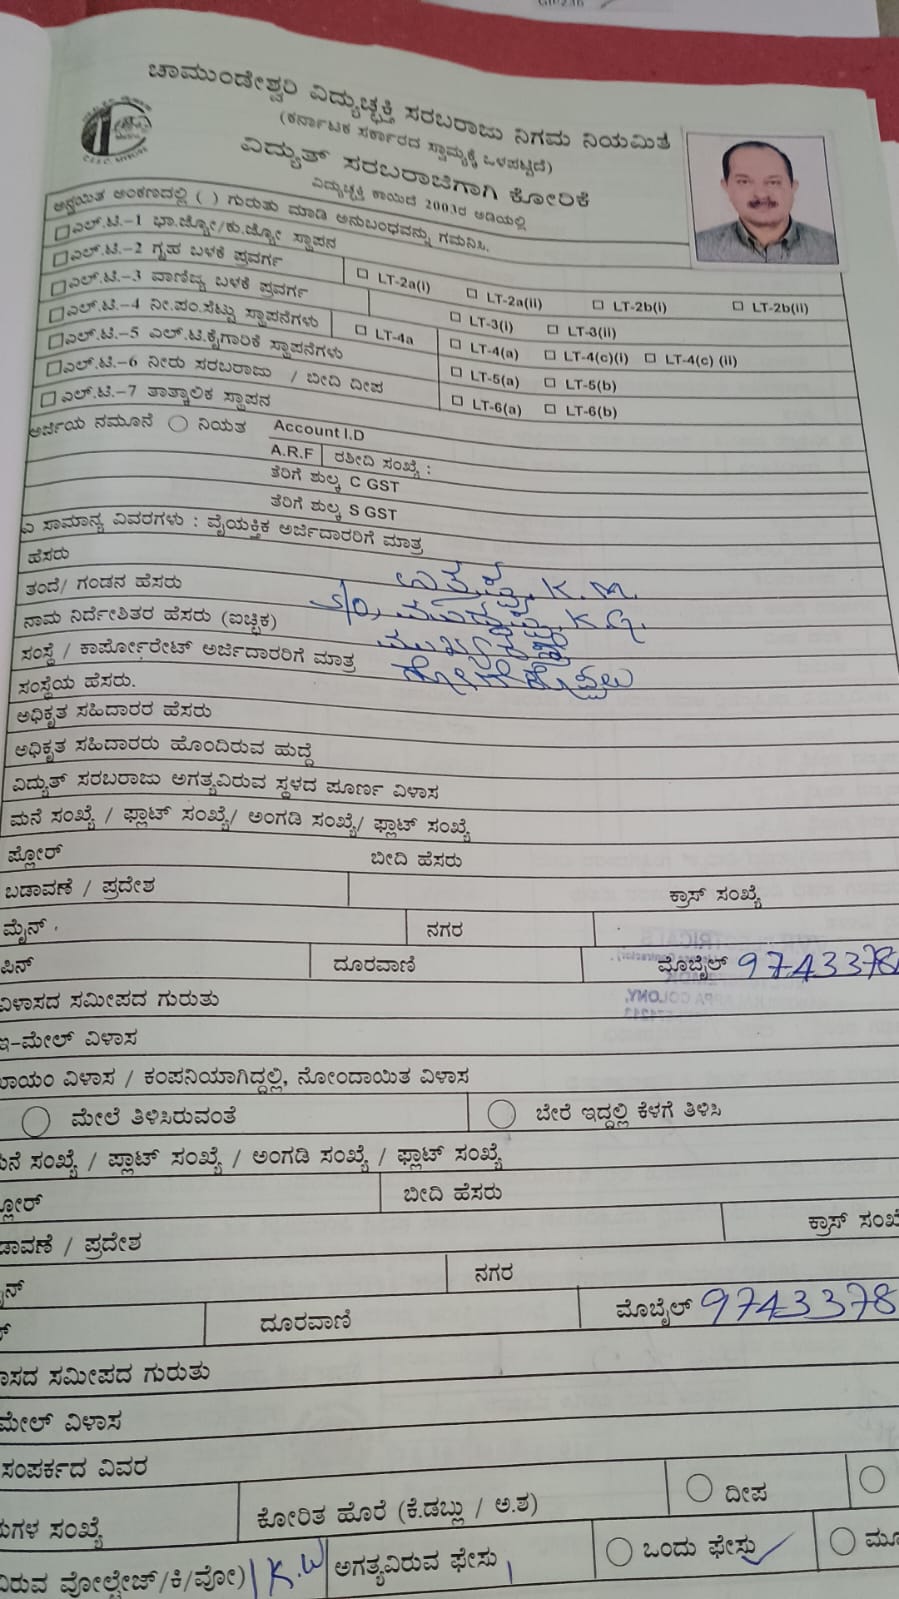 ಚಾಮುಂಡೇಶ್ವರಿ ವಿದ್ಯುಚ್ಛಕ್ತಿ ಸರಬರಾಜು ನಿಗಮ ನಿಯಮಿತ
(ಕರ್ನಾಟಕ ಸರ್ಕಾರದ ಸ್ವಾಮ್ಯಕ್ಕೆ ಒಳಪಟ್ಟಿದೆ)
ವಿದ್ಯುತ್ ಸರಬರಾಜಿಗಾಗಿ ಕೋರಿಕೆ
ವಿದ್ಯುಚ್ಛಕ್ತಿ ಕಾಯಿದೆ 2003ರ ಅಡಿಯಲ್ಲಿ
ಅನ್ವಯಿತ ಅಂಕಣದಲ್ಲಿ ( ) ಗುರುತು ಮಾಡಿ ಅನುಬಂಧವನ್ನು ಗಮನಿಸಿ.
ಎಲ್.ಟಿ.-1 ಭಾ.ಜ್ಯೋ/ಕು.ಜ್ಯೋ ಸ್ಥಾಪನ
ಎಲ್.ಟಿ.-2 ಗೃಹ ಬಳಕೆ ಪ್ರವರ್ಗ LT-2a(i) LT-2a(ii) LT-2b(i) LT-2b(ii)
ಎಲ್.ಟಿ.-3 ವಾಣಿಜ್ಯ ಬಳಕೆ ಪ್ರವರ್ಗ LT-3(i) LT-3(ii)
ಎಲ್.ಟಿ.-4 ನೀ.ಪಂ.ಸೆಟ್ಟು ಸ್ಥಾಪನೆಗಳು LT-4a LT-4(a) LT-4(c)(i) LT-4(c) (ii)
ಎಲ್.ಟಿ.-5 ಎಲ್.ಟಿ.ಕೈಗಾರಿಕೆ ಸ್ಥಾಪನೆಗಳು LT-5(a) LT-5(b)
ಎಲ್.ಟಿ.-6 ನೀರು ಸರಬರಾಜು / ಬೀದಿ ದೀಪ LT-6(a) LT-6(b)
ಎಲ್.ಟಿ.-7 ತಾತ್ಕಾಲಿಕ ಸ್ಥಾಪನ
ಅರ್ಜಿಯ ನಮೂನೆ ನಿಯತ Account I.D
A.R.F ರಶೀದಿ ಸಂಖ್ಯೆ :
ತೆರಿಗೆ ಶುಲ್ಕ C GST
ತೆರಿಗೆ ಶುಲ್ಕ S GST
ಎ ಸಾಮಾನ್ಯ ವಿವರಗಳು : ವೈಯಕ್ತಿಕ ಅರ್ಜಿದಾರರಿಗೆ ಮಾತ್ರ
ಹೆಸರು K.M.
ತಂದೆ/ ಗಂಡನ ಹೆಸರು S/O, K.G.
ನಾಮ ನಿರ್ದೇಶಿತರ ಹೆಸರು (ಐಚ್ಛಿಕ)
ಸಂಸ್ಥೆ / ಕಾರ್ಪೋರೇಟ್ ಅರ್ಜಿದಾರರಿಗೆ ಮಾತ್ರ
ಸಂಸ್ಥೆಯ ಹೆಸರು.
ಅಧಿಕೃತ ಸಹಿದಾರರ ಹೆಸರು
ಅಧಿಕೃತ ಸಹಿದಾರರು ಹೊಂದಿರುವ ಹುದ್ದೆ
ವಿದ್ಯುತ್ ಸರಬರಾಜು ಅಗತ್ಯವಿರುವ ಸ್ಥಳದ ಪೂರ್ಣ ವಿಳಾಸ
ಮನೆ ಸಂಖ್ಯೆ / ಫ್ಲಾಟ್ ಸಂಖ್ಯೆ/ ಅಂಗಡಿ ಸಂಖ್ಯೆ/ ಫ್ಲಾಟ್ ಸಂಖ್ಯೆ
ಫ್ಲೋರ್ ಬೀದಿ ಹೆಸರು
ಬಡಾವಣೆ / ಪ್ರದೇಶ ಕ್ರಾಸ್ ಸಂಖ್ಯೆ
ಮೈನ್ ನಗರ
ಪಿನ್ ದೂರವಾಣಿ ಮೊಬೈಲ್ 9743378
ವಿಳಾಸದ ಸಮೀಪದ ಗುರುತು
ಇ-ಮೇಲ್ ವಿಳಾಸ
ಖಾಯಂ ವಿಳಾಸ / ಕಂಪನಿಯಾಗಿದ್ದಲ್ಲಿ, ನೋಂದಾಯಿತ ವಿಳಾಸ
ಮೇಲೆ ತಿಳಿಸಿರುವಂತೆ ಬೇರೆ ಇದ್ದಲ್ಲಿ ಕೆಳಗೆ ತಿಳಿಸಿ
ನೆ ಸಂಖ್ಯೆ / ಪ್ಲಾಟ್ ಸಂಖ್ಯೆ / ಅಂಗಡಿ ಸಂಖ್ಯೆ / ಫ್ಲಾಟ್ ಸಂಖ್ಯೆ
ಲೋರ್ ಬೀದಿ ಹೆಸರು
ಡಾವಣೆ / ಪ್ರದೇಶ ಕ್ರಾಸ್ ಸಂಖ್ಯೆ
ನ್ ನಗರ
ದೂರವಾಣಿ ಮೊಬೈಲ್ 9743378
ಾಸದ ಸಮೀಪದ ಗುರುತು
ಮೇಲ್ ವಿಳಾಸ
ಸಂಪರ್ಕದ ವಿವರ
ಗಳ ಸಂಖ್ಯೆ ಕೋರಿತ ಹೊರೆ (ಕೆ.ಡಬ್ಲು / ಅ.ಶ) ದೀಪ
ವಿರುವ ವೋಲ್ಟೇಜ್/ಕಿ/ವೋ) 1 K.W ಅಗತ್ಯವಿರುವ ಫೇಸು ಒಂದು ಫೇಸು ಮೂ